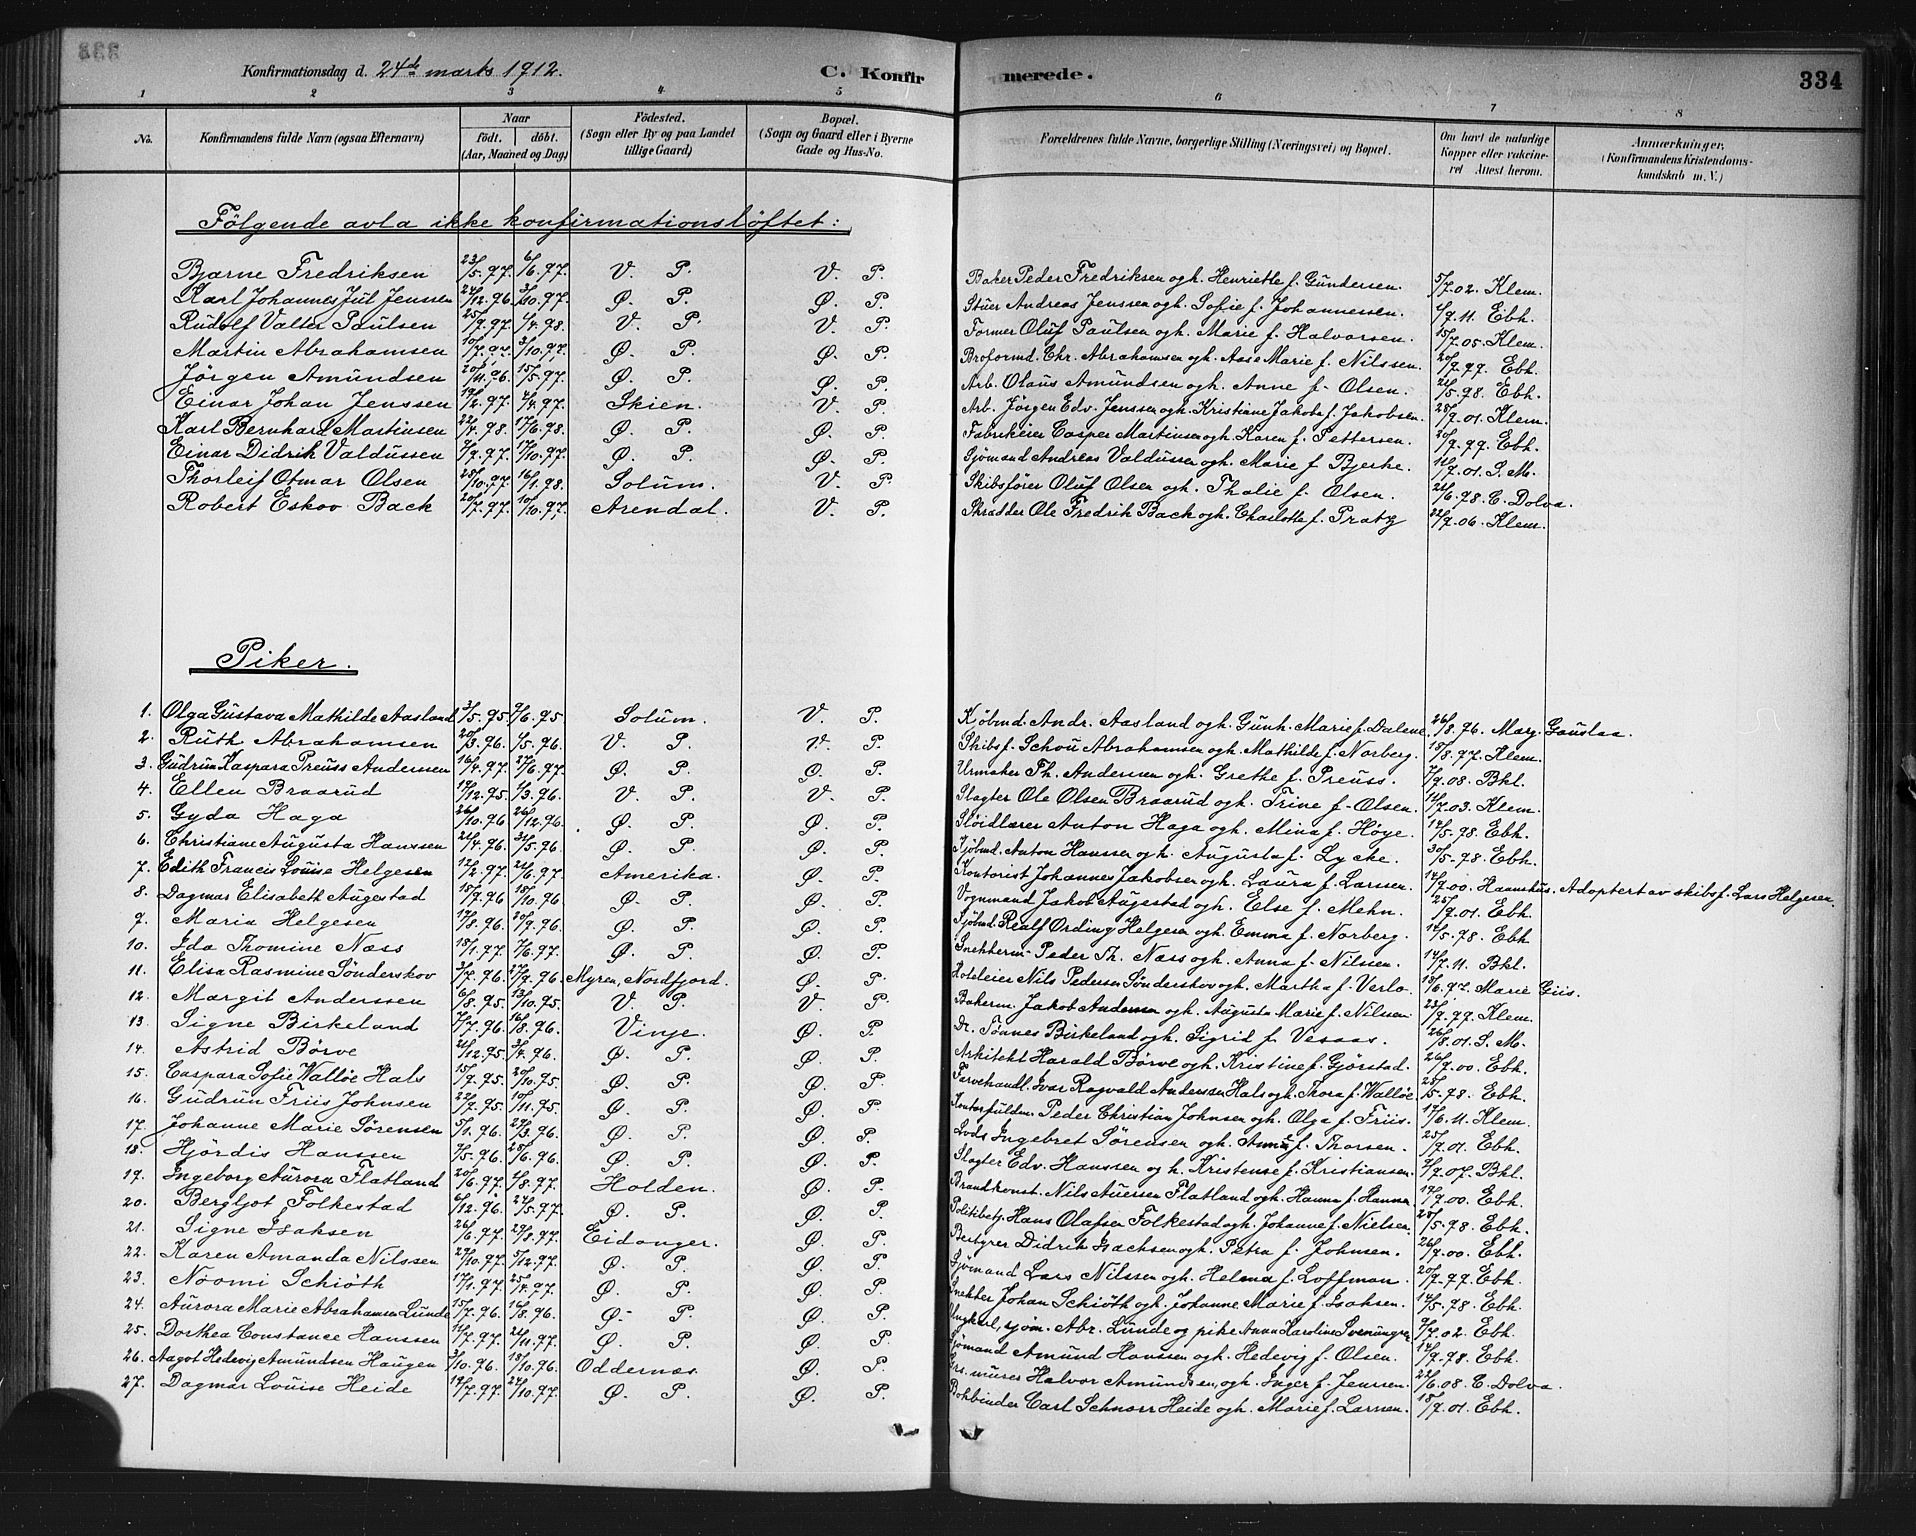 Konfirmationsdag d. 24de marts 1912. C. Konfirmerede. 334
1 2 3 4 5 6 7 8
No. Konfirmandens fulde Navn (ogsaa Efternavn) Naar født. døbt. (Aar, Maaned og Dag) Fødested. (Sogn eller By og paa Landet tillige Gaard) Bopæl. (Sogn og Gaard eller i Byerne Gade og Hus-No. Forældrenes fulde Navne, borgerlige Stilling (Næringsvei) og Bopæl. Om havt de naturlige Kopper eller vakcineret Attest herom. Anmærkninger, (Konfirmandens Kristendomskundskab m. V.)
Følgende avla ikke konfirmationsløftet:
Bjarne Fredriksen 23/5.97. 6/6.97. V. P. V. P. Baker Peder Fredriksen og h. Henriette f. Gundersen. 5/7.02. Klem.
Karl Johannes Jul Jenssen 24/12.96. 3/10.97. Ø. P. Ø. P. Stuer Andreas Jenssen og h. Sofie f. Johannessen. 6/9.11. Eibh.
Rudolf Valter Paulsen 25/9.97. 4/4.98. V. P. V. P. Former Oluf Paulsen og h. Marie f. Halvorsen. 15/7.05. Klem.
Martin Abrahamsen 10/7.97. 3/10.97. Ø. P. Ø. P. Broformd. Chr. Abrahamsen og h. Aase Marie f. Nilssen. 20/9.99. Ebh.
Jörgen Amundsen 20/11.96. 15/5.97. Ø. P. Ø. P. Arb. Olaus Amundsen og h. Anne f. Olsen. 21/5.98. Ebh.
Einar Johan Jenssen 19/2.97. 4/4.97. Skien. V. P. Arb. Jørgen Edv. Jenssen og h. Kristiane Jakobe f. Jakobsen. 28/9.01. Klem.
Karl Bernhard Martinsen 22/4.98. 17/6.98. Ø. P. Ø. P. Fabrikeier Casper Martinsen og h. Karen f. Pettersen. 20/9.99. Ebh.
Einar Didrik Valdussen 7/9.97. 17/10.97. Ø. P. Ø. P. Sjømand Andreas Valdussen og h. Marie f. Bjerke. 16/7.01. S. M.
Thorleif Otmar Olsen 28/10.97. 16/1.98. Solum. V. P. Skibsfører Oluf Olsen og h. Thalie f. Olsen. 21/6.98. C. Dolva.
Robert Eskov Back 20/7.97. 10/10.97. Arendal. V. P. Skrædder Ole Fredrik Back og h. Charlotte f. Pratz 22/9.06. Klem.
Piker.
1. Olga Gustava Mathilde Aasland 3/5.95. 9/6.95. Solum. V. P. Kjøbmd. Andr. Aasland og h. Gunh. Marie f. Dalene. 26/8.96. Marg. Gauslaa.
2. Ruth Abrahamsen 20/3.96. /5.96. V. P. V. P. Skibsf. Schou Abrahamsen og h. Mathilde f. Norberg. 18/8.97. Klem.
3. Gudrun Kaspara Preuss Andersen 16/4.97. 27/6.97. Ø. P. Ø. P. Urmaker Th. Andersen og h. Grethe f. Preuss. 7/9.08. Bkl.
4. Ellen Braarud 19/12.95. /3.96. V. P. V. P. Slagter Ole Olsen Braarud og h. Trine f. Olsen. 14/7.03. Klem.
5. Gyda Haga 26/10.96 26/12.96. Ø. P. Ø. P. Sløidlærer Anton Haga og h. Mina f. Høye. 14/5.98. Ebh.
6. Christiane Augusta Hanssen 21/4.96. 31/5.96. Ø. P. Ø. P. Kjøbmd. Anton Hanssen og h. Augusta f. Lycke. 30/5.98. Ebh.
7. Edith Francis Louise Helgesen 12/2.97. 21/6.97. Amerika. Ø. P. Kontorist Johannes Jakobsen og h. Laura f. Larsen. 14/9.00. Haanshus. Adoptert av skibsf. Lars Helgesen.
8. Dagmar Elisabeth Augestad 15/9.96 18/10.96 Ø. P. Ø. P. Vognmand Jakob Augestad og h. Else f. Mehn. 25/9.01. Ebh.
9. Maria Helgesen 17/8.96. 20/9.96. Ø. P. Ø. P. Kjøbmd. Realf Ording Helgesen og h. Emma f. Norberg. 14/5.98. Ebh
10. Ida Thomine Næss 15/1.97. 7/6.97. Ø. P. Ø. P. Snekkerm. Peder Th. Næss og h. Anna f. Nilssen. 14/7.11. Bkl.
11. Elisa Rasmine Sønderskov 3/7.96. 27/9.96 Myren, Nordfjord. Ø. P. Hoteleier Nils Pedersen Sønderskov og h. Martha f. Verlo. 15/6.97. Marie Giis.
12. Margit Anderssen 6/8.95. 13/10.95. V. P. V. P. Bakerm. Jakob Anderssen og h. Augusta Marie f. Nilssen. 23/9.99. Klem.
13. Signe Birkeland 7/7.96. 16/8.96. Vinje. Ø. P. Dr. Tønnes Birkeland og h. Sigrid f. Vesaas. 26/8.01. S. M.
14. Astrid Børve 21/12.95. 3/4.96. Ø. P. Ø. P. Arkitekt Harald Børve og h. Kristine f. Gjørstad. 26/9.00. Ebh.
15. Caspara Sofie Walløe Hals 15/9.95. 20/10.95. Ø. P. Ø. P. Farvehandl. Ivar Ragvald Anderssen Hals og h. Thora f. Walløe. 25/5.98. Ebh.
16. Gudrun Friis Johnsen 22/9.95. 10/11.95. Ø. P. Ø. P. Kontorfuldm. Peder Christian Johnsen og h. Olga f. Friis. 17/6.11. Klem.
17. Johanne Marie Sørensen 5/1.96. 29/3.96. Ø. P. Ø. P. Lods Ingebret Sørensen og h. Anna f. Thorsen. 25/9.01. Ebh.
18. Hjördis Hanssen 9/5.96. 28/6.96. Ø. P. Ø. P. Slagter Edv. Hanssen og h. Kristense f. Kristiansen. 9/9.07. Bkl.
19. Ingeborg Aurora Flatland 20/6.97. /8.97. Holden. Ø. P. Brandkonst. Nils Auenssen Flatland og h. Hanna f. Hansen 19/9.00. Ebh.
20. Bergljot Folkestad 6/12.96. 27/5.97. Ø. P. Ø. P. Politibetj. Hans Olafsen Folkestad og h. Johanne f. Nielsen. 28/5.98. Ebh.
21. Signe Isaksen 26/6.97. 29/8.97. Eidanger. Ø. P. Bertgrer Didrik Isachsen og h. Petra f. Johnsen. 26/9.00. Ebh.
22. Karen Amanda Nilssen 27/10.97. 5/12.97. Ø. P. Ø. P. Sjømand Lars Nilssen og h. Helma f. Loffman. 20/9.99. Ebh.
23. Noomi Schiøth 17/1.97. 25/4.97. Ø. P. Ø. P. Snekker Johan Schiøth og h. Johanne Marie f. Isaksen. 14/5.98. Ebh.
24. Aurora Marie Abrahamsen Lunde 15/7.96. 16/8.96. Ø. P. Ø. P. Ungkarl, sjøm. Abr. Lunde og pike Anna Karoline Svenungsen 9/7.02. Ebh.
25. Dorthea Constance Hanssen 11/7.97. 21/11.97. Ø. P. Ø. P. Sjømand Amund Hanssen og h. Hedevig f. Olsen. 14/9.98. Ebh.
26. Aagot Hedevig Amundsen Haugen 3/10.96. 18/10.96. Oddernæs. Ø. P. Grs. murer Halvor Amundsen, og h. Inger f. Jenssen. 22/6.08. C. Dolva.
27. Dagmar Louise Heide 19/7.97. 24/10.97. Ø. P. Ø. P. Bokbinder Carl Schnorr Heide og h. Marie f. Larsen. 18/9.01. Ebh.